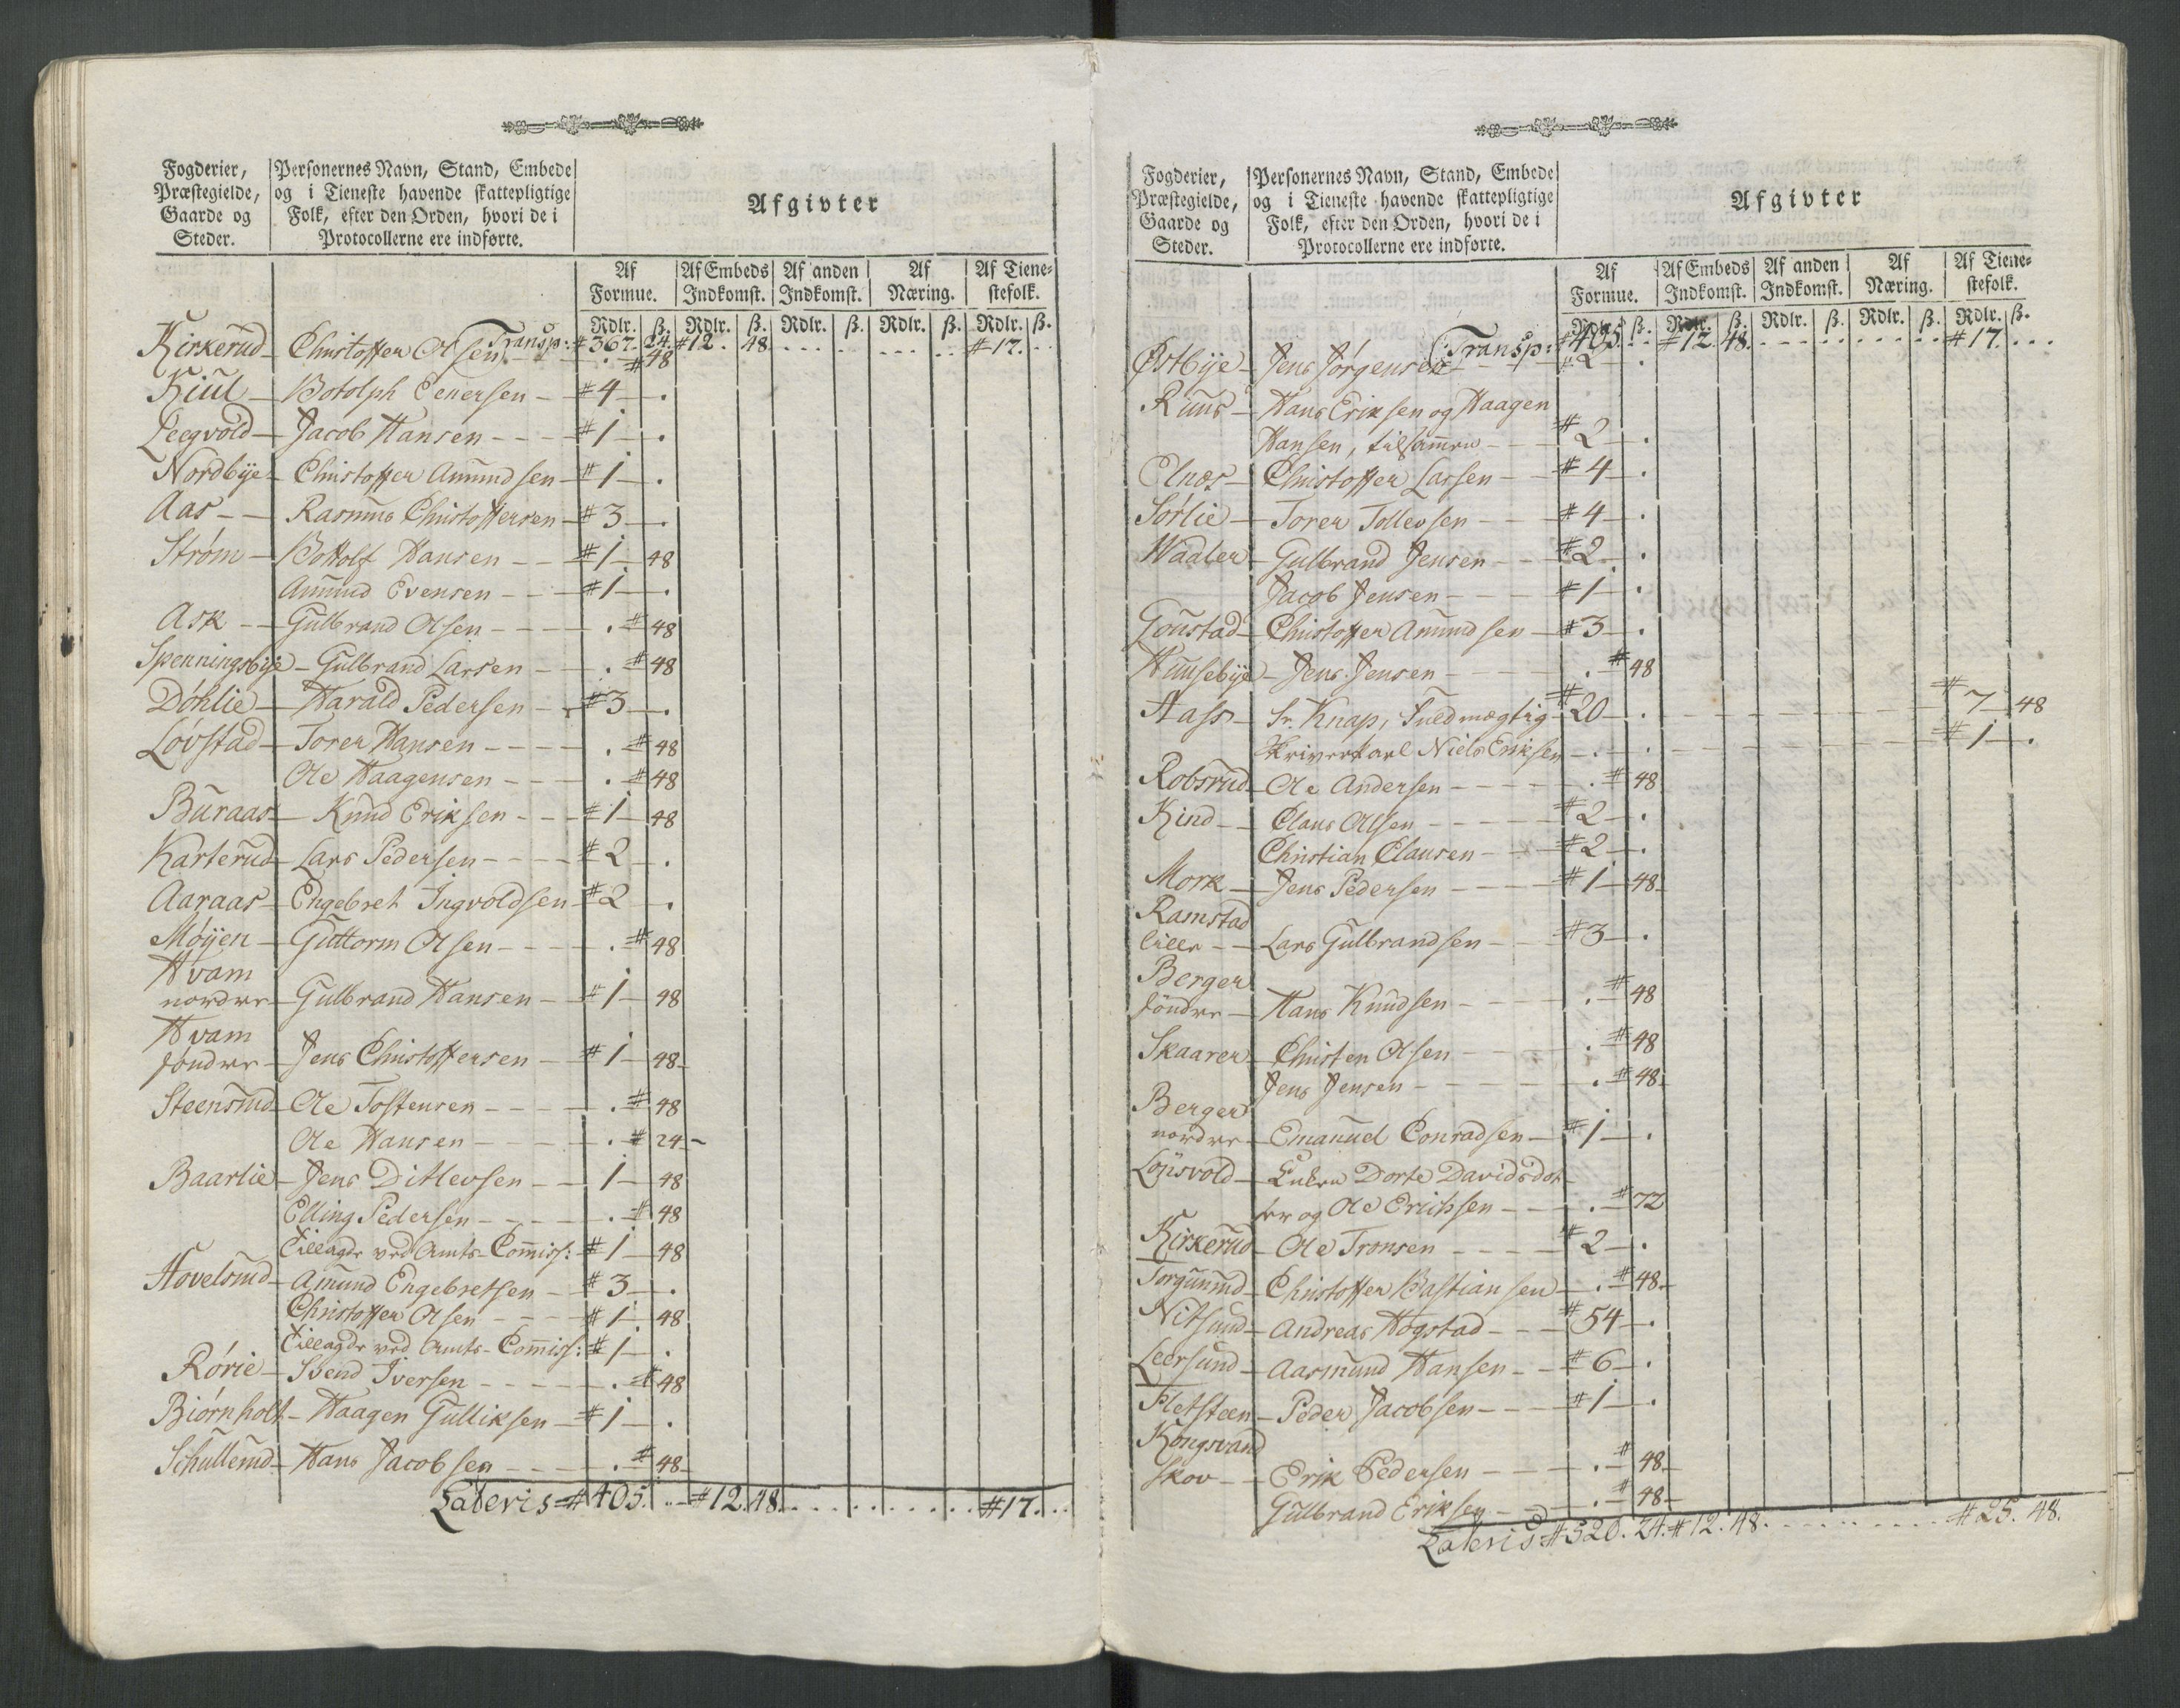 Fogderier,
Præstegielde,
Gaarde og
Steder.
Personernes Navn, Stand, Embede
og i Tieneste havende skattepligtige
Folk, efter den Orden, hvori de i
Protocollerne ere indførte.
Afgivter
Af Formue. Af Embeds Indkomst. Af anden Indkomst. Af Næring. Af Tienestefolk.
Rdlr. ß. Rdlr. ß. Rdlr. ß. Rdlr. ß. Rdlr. ß.
Transp: # 367. 24. # 12. 48. # 17.
Kirkerud - Christoffer Olsen . # 48
Kiul - Botolph Eenersen - # 4 - .
Leegvold - Jacob Hansen - # 1 - .
Nordbye - Christoffer Amundsen - # 1 - .
Aas - Rasmus Christoffersen - # 3 - .
Strøm - Bottolf Hansen - # 1 - 48
Amund Evensen - # 1 - .
Ask - Gulbrand Olsen - . # 48
Spenningsbye - Gulbrand Larsen - . # 48
Døhlie - Harald Pedersen - # 3 - .
Løvstad - Torer Hansen - . # 48
Ole Haagensen - . # 48
Buraas - Knud Eriksen - # 1 - 48
Karterud - Lars Pedersen - # 2 - .
Aaraas - Engebret Ingvoldsen # 2 - .
Møyen - Guttorm Olsen - . # 48
Hvam
nordre - Gulbrand Hansen - # 1 - 48
Hvam
søndre - Jens Christoffersen - # 1 - 48
Steensrud - Ole Tostensen - . # 48
Ole Hansen - . # 24
Baarlie - Jens Ditlevsen - 1 - 48
Elling Pedersen - . # 48
Tillagde ved Amts-Commiss: # 1 - 48
Hovelsrud - Amund Engebretsen - # 3 - .
Christoffer Olsen - # 1 - 48
Tillagde ved Amts-Commiss: # 1 - .
Rørie - Svend Iversen - . # 48
Biørnholt - Haagen Gulliksen - # 1 - .
Schullerud - Hans Jacobsen - . # 48
Lateris # 405. # 12. 48. # 17.
Fogderier,
Præstegielde,
Gaarde og
Steder.
Personernes Navn, Stand, Embede
og i Tieneste havende skattepligtige
Folk, efter den Orden, hvori de i
Protocollerne ere indførte.
Afgivter
Af Formue. Af Embeds Indkomst. Af anden Indkomst. Af Næring. Af Tienestefolk.
Rdlr. ß. Rdlr. ß. Rdlr. ß. Rdlr. ß. Rdlr. ß.
Transp: # 405. # 12. 48. # 17.
Østbye - Jens Jørgensen - # 2 .
Ruus - Hans Eriksen og Haagen
Hansen, tilsammen - # 2 - .
Elnæs - Christoffer Larsen - # 4 - .
Sørlie - Torer Tollevsen - # 4 - .
Waaler - Gulbrand Jensen - # 2 - .
Jacob Jensen - # 1 - .
Goustad - Christoffer Amundsen - # 3 - .
Huusebye - Jens Jensen - . # 48
Aass - Sr. Knap, Fuldmægtig # 20 - . # 7 - 48
Skriverkarl Niels Eriksen - . # 1 - .
Robsrud - Ole Andersen - . # 48
Kind - Claus Olsen - # 2 - .
Christian Clausen - # 2 - .
Mork - Jens Pedersen - # 1 - 48
Ramstad
lille - Lars Gulbrandsen - # 3 - .
Berger
søndre - Hans Knudsen - . # 48
Skaarer - Christen Olsen - . # 48
Jens Jensen - . # 48
Berger
nordre - Emanuel Conradsen - # 1 - .
Lysvold - Enken Dorte Davidsdot-
ter og Ole Erichsen - . # 72
Kirkerud - Ole Tronsen - # 2 - .
Torgunrud - Christoffer Bastiansen - . # 48
Nitsund - Andreas Høgstad - # 54 - .
Leersund - Aasmund Hansen - # 6 - .
Fletsteen - Peder Jacobsen - # 1 - .
Kongsvand
skov - Erik Pedersen - . # 48
Gulbrand Eriksen - . # 48
Lateris # 520. 24. # 12. 48. # 25. 48.